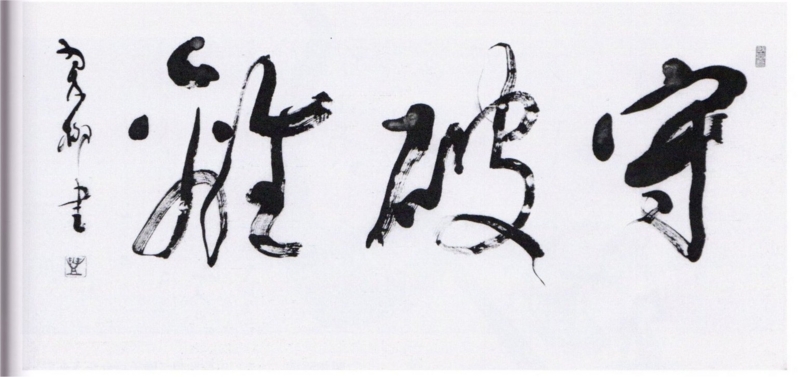 守破離
書